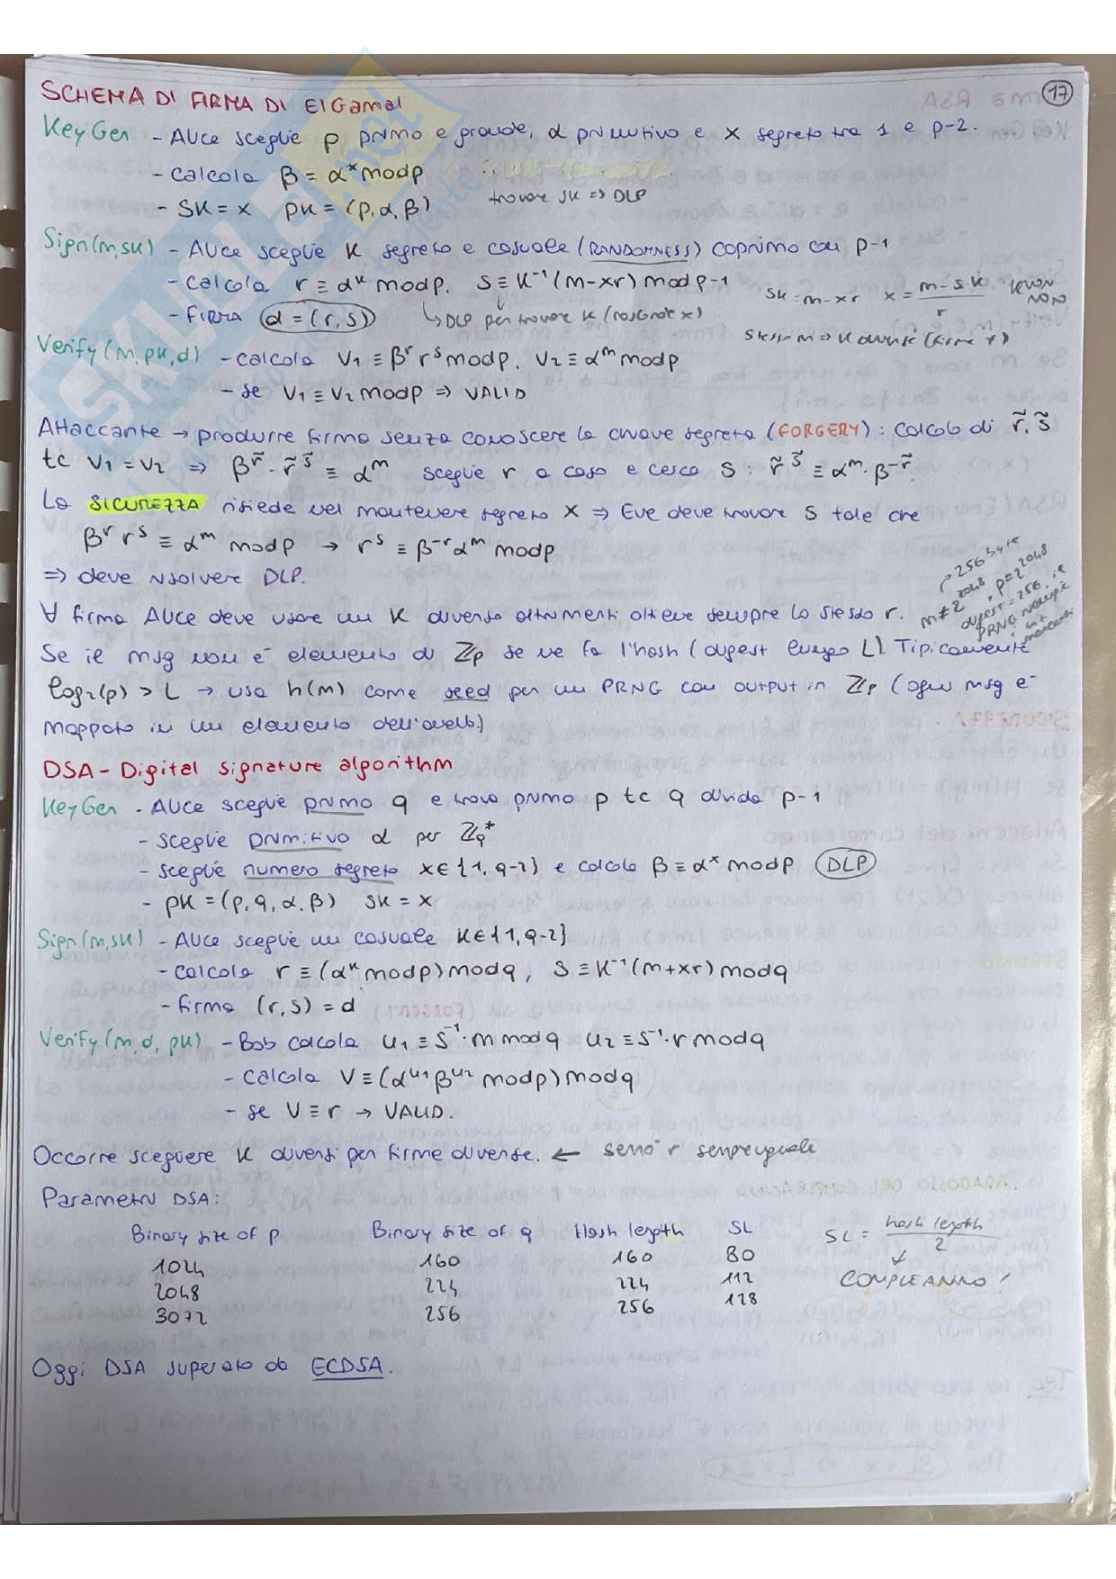 17
SCHEMA DI FIRMA DI ElGamal
KeyGen - Alice sceglie p primo e grande, α primitivo e x segreto tra 1 e p-2.
- calcola β = αˣ mod p
- SK = x pk = (p, α, β) trovare sk => DLP
Sign(m,sk) - Alice sceglie K segreto e casuale (RANDOMNESS) coprimo con p-1
- calcola r ≡ αᵏ mod p. S ≡ K⁻¹(m-xr) mod p-1
sk = m-xr x = m-sk / r
- FIRMA d = (r,s) ↳ DLP per trovare K (nasconde x)
Verify(m, pk, d) - calcola V₁ ≡ βʳ rˢ mod p. V₂ ≡ αᵐ mod p
- se V₁ ≡ V₂ mod p => VALID
Attaccante → produrre firma senza conoscere la chiave segreta (FORGERY): calcolo di r̃, s̃
tc V₁ = V₂ => β^r̃ · r̃^s̃ ≡ αᵐ sceglie r a caso e cerca S : r̃^s̃ ≡ αᵐ · β^-r̃.
La SICUREZZA risiede nel mantenere segreto x => Eve deve trovare S tale che
βʳ rˢ ≡ αᵐ mod p → rˢ ≡ β⁻ʳ αᵐ mod p
=> deve risolvere DLP.
∀ firma Alice deve usare un K diverso altrimenti ottiene sempre lo stesso r.
Se il msg non è elemento di Zp se ne fa l'hash (digest lungo L). Tipicamente
log₂(p) > L → usa h(m) come seed per un PRNG con output in Zp (ogni msg è
mappato in un elemento dell'anello)
DSA - Digital signature algorithm
KeyGen - Alice sceglie primo q e trova primo p tc q divida p-1
- sceglie primitivo α per Zq*
- sceglie numero segreto x∈{1, q-2} e calcola β ≡ αˣ mod p (DLP)
- pk = (p, q, α, β) sk = x
Sign(m, sk) - Alice sceglie un casuale K∈{1, q-2}
- calcola r ≡ (αᵏ mod p) mod q, S ≡ K⁻¹(m+xr) mod q
- firma (r,s) = d
Verify(m, d, pk) - Bob calcola u₁ ≡ S⁻¹·m mod q u₂ ≡ S⁻¹·r mod q
- calcola V ≡ (α^u₁ β^u₂ mod p) mod q
- se V ≡ r → VALID.
Occorre scegliere K diversi per firme diverse. ← sennò r sempre uguale
Parametri DSA:
Binary size of p Binary size of q Hash length SL
1024 160 160 80
2048 224 224 112
3072 256 256 128
SL = hash length / 2
COMPLEANNO!
Oggi DSA superato da ECDSA.